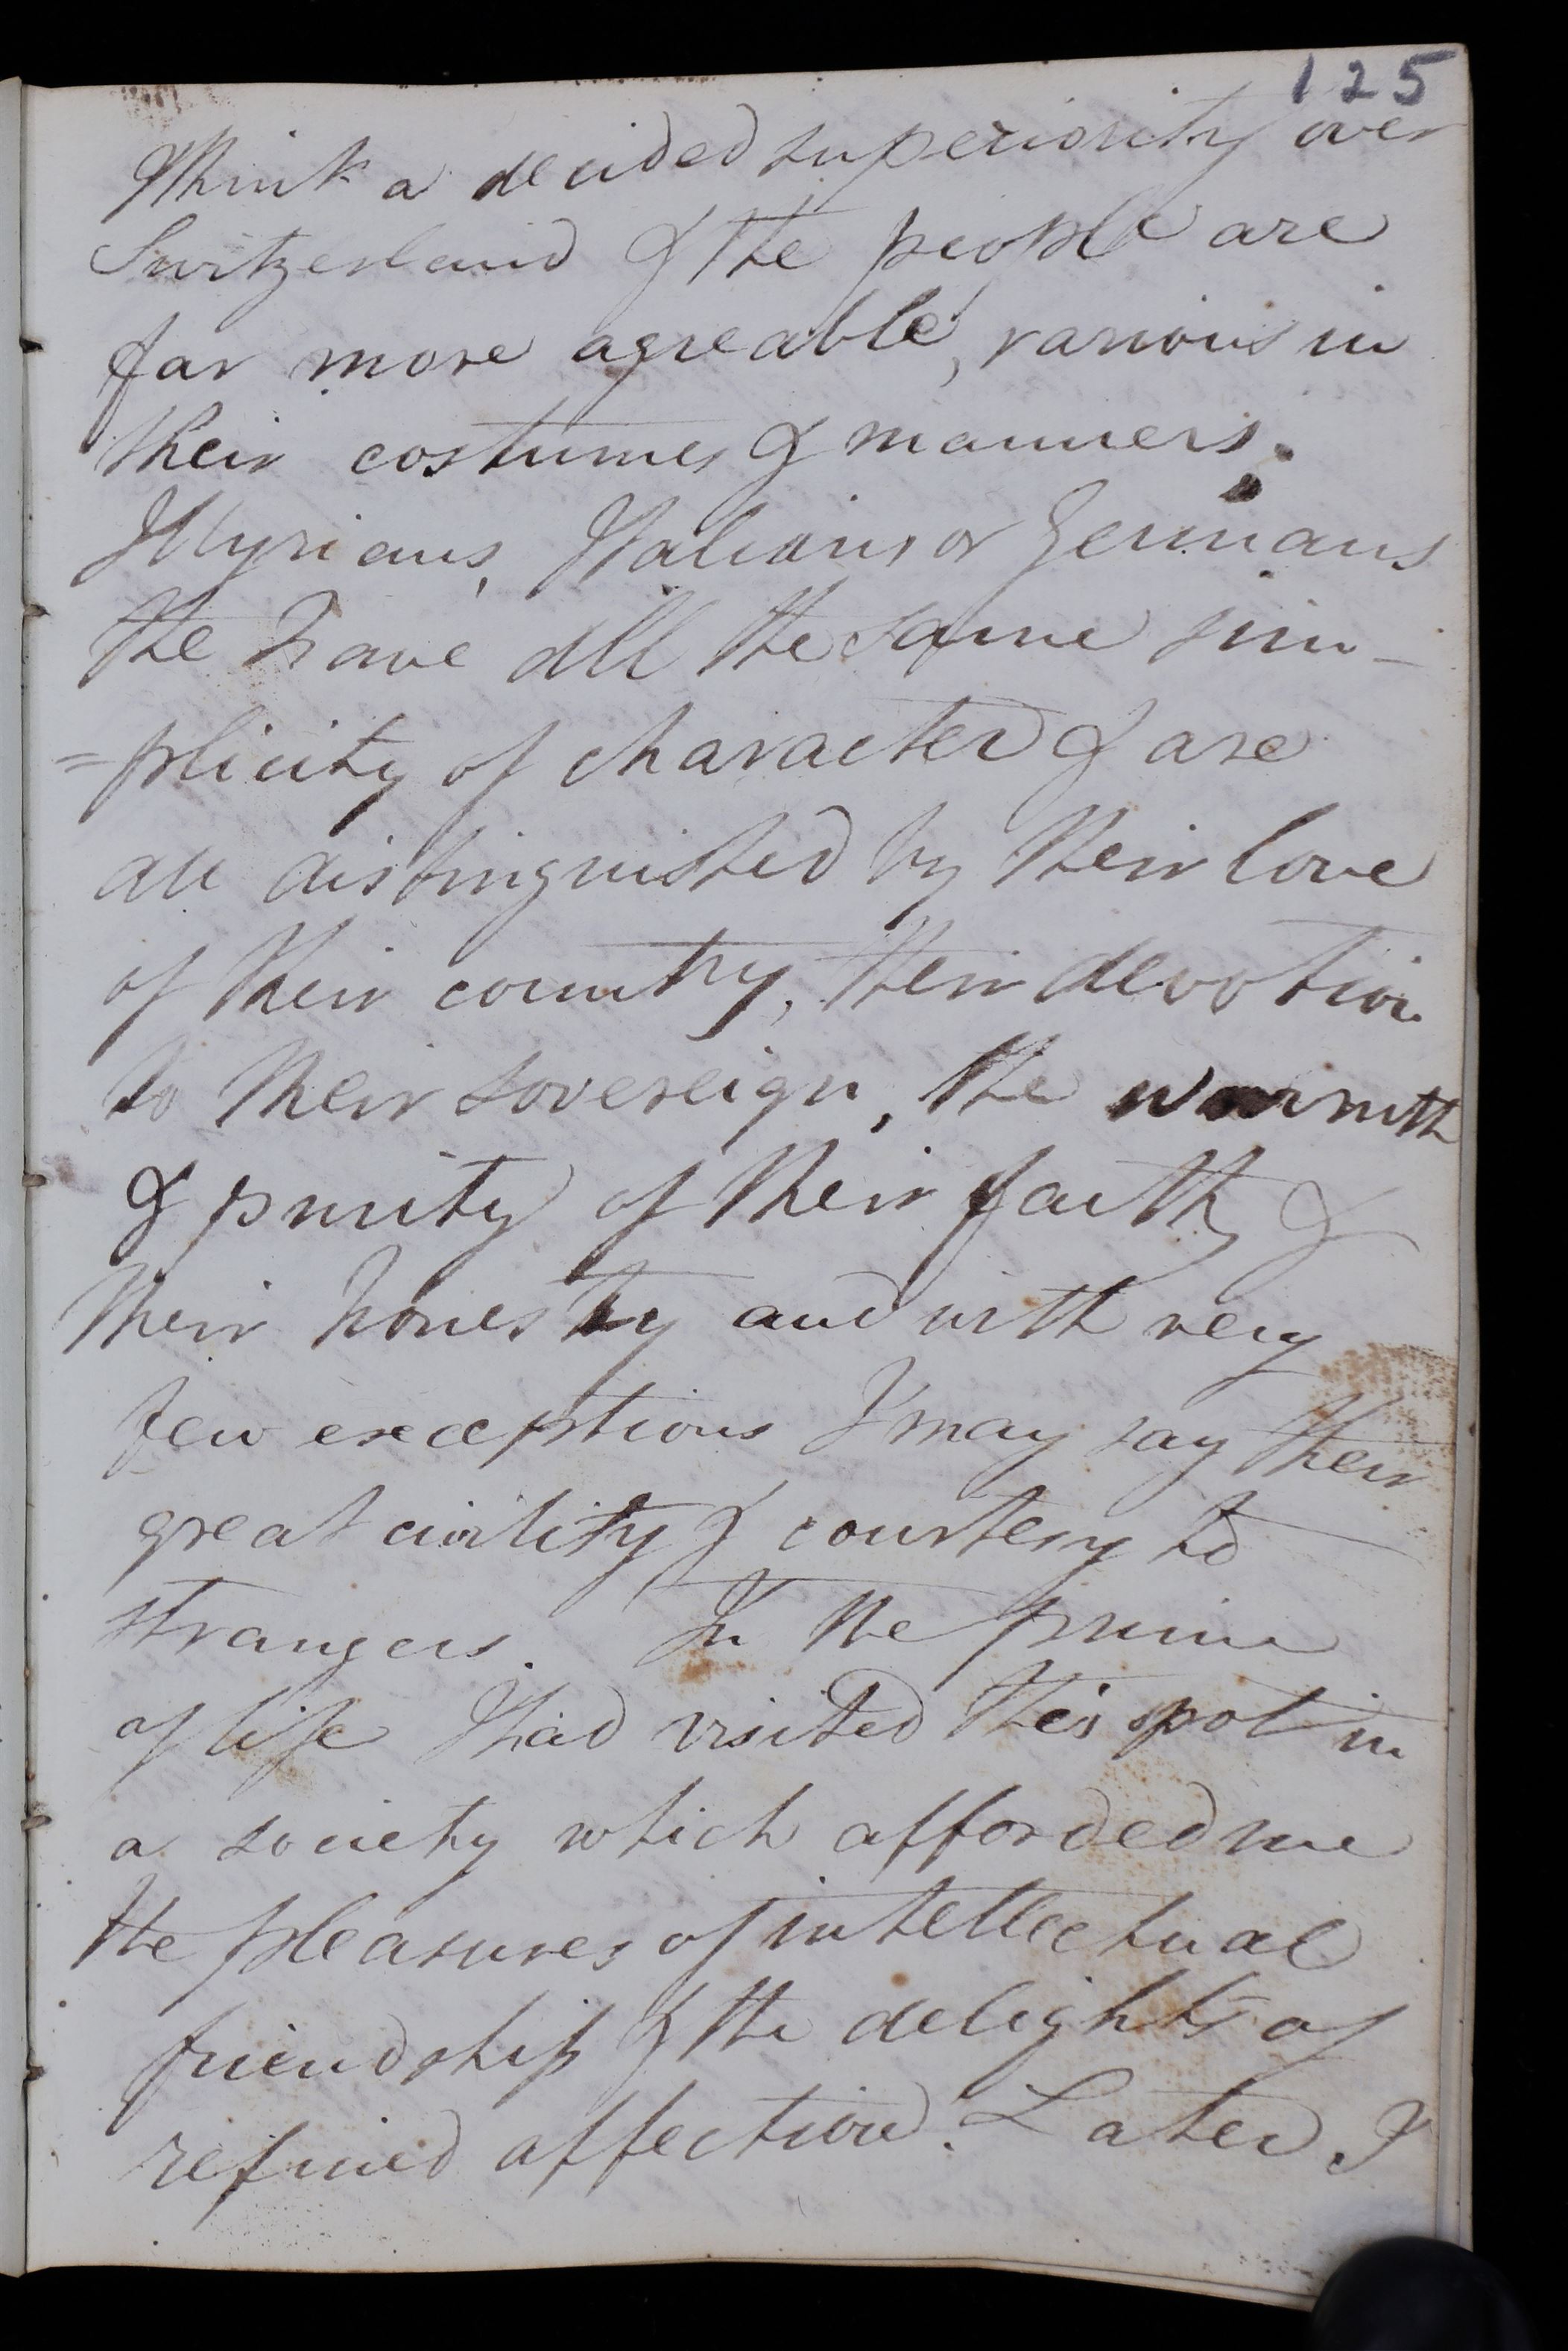 125
I think a decided superiority over
Switzerland & the people are
far more agreable, various in
their costumes & manners.
Illyrians, Italians or Germans
the have all the same sim-
=plicity of character & are
all distinguished by their love
of their country, their devotion
to their sovereign, the warmth
& purity of their faith, &
their honesty and with very
few exceptions I may say their
great civility & courtesy to
strangers. In the prime
of life I had visited this spot in
a society which afforded me
the pleasures of intellectual
friendship & the delights of
refined affection. Later I